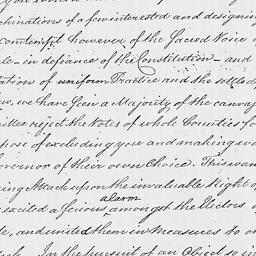 chinations of a few interested and designing
contempt however of the Sacred Voice o
le in defiance of the Constitution and
ation of uniform Practice and the settled
we have seen a Majority of the canvas
ittee reject the Votes of whole Counties fo
pose of excluding you and making wa
overnor of their own Choice. This wan
ing Attack upon the invaluable Right of
alarm
excited a serious amongst the Electors
le, and united them in measures to
In the pursuit of an Object so in